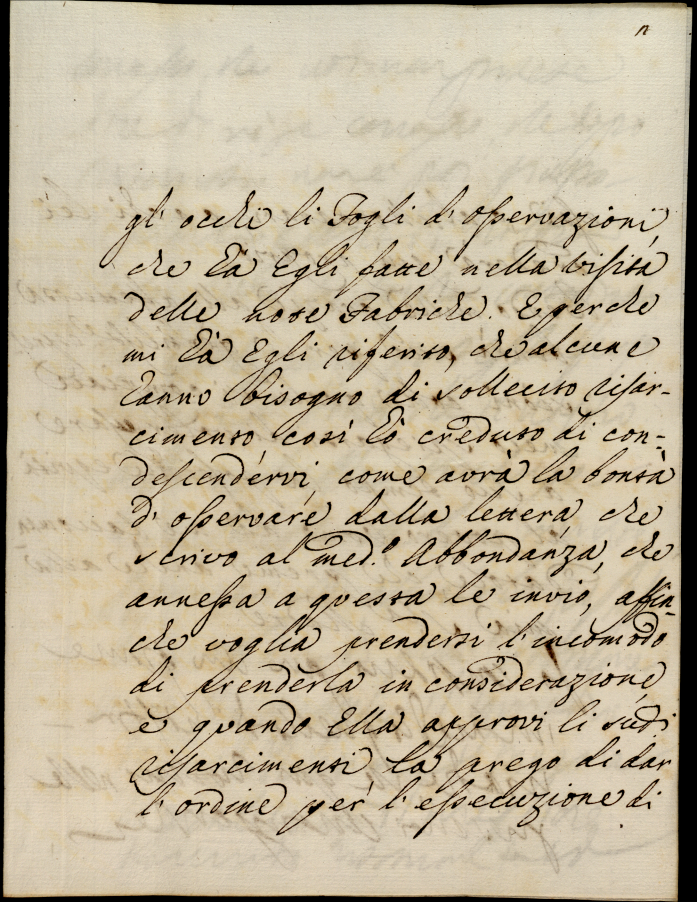 gl' occhi li Fogli d' osservazioni,
che hà Egli fatte nella visita
delle nose Fabriche. E perche
mi hà Egli riferito, che alcune
hanno bisogno di sollecito risar-
cimento, così hò creduto di con-
descendervi, come avrà la bontà
d' osservare dalla lettera, che
scrivo al med.º Abbondanza, che
annessa a questa le invio, affin-
che voglia prendersi l' incomodo
di prenderla in considerazione,
e quando Ella approvi li sud.i
risarcimenti la prego di dar
l' ordine per l' essecuzione di